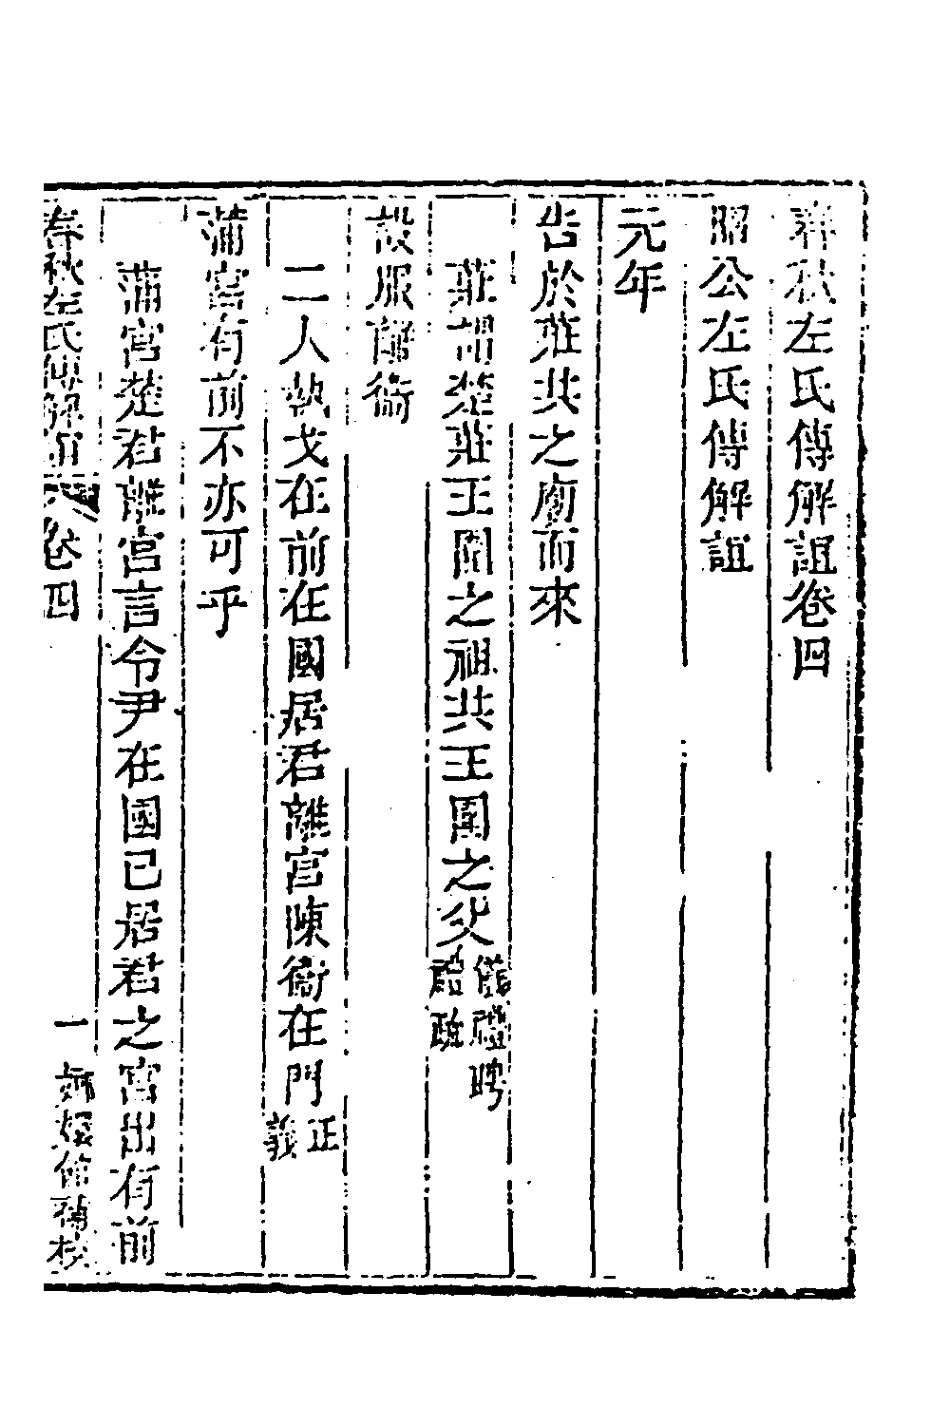 春秋左氏傳解詛卷四
昭公左氏傳解詛
元年
告於莊共之廟而來
莊謂楚莊王圍之祖共王圍之父儀禮聘
詒疏
設服離衞
二人執戈在前在國居君離宮陳衞在門正
義
蒲宮有前不亦可乎
蒲宮楚君離宮言令尹在國已居君之宮出有前
春秋左氏傳解
卷四
一
嫏嬛館補校